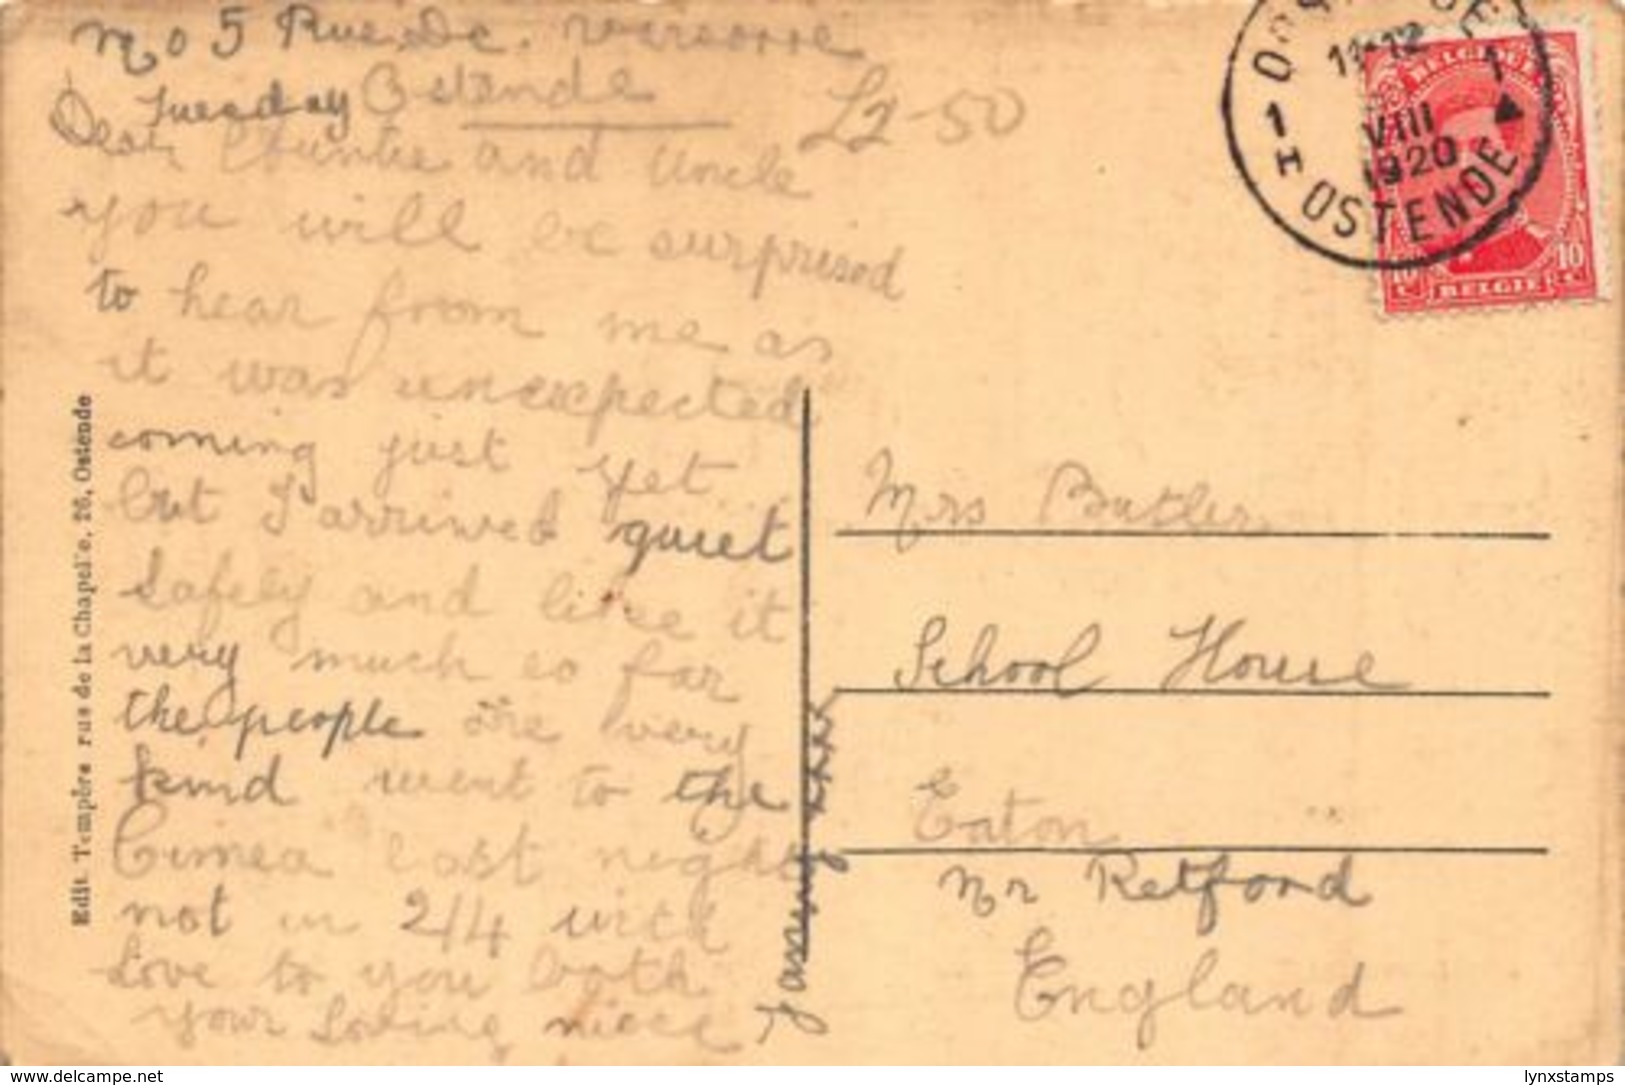 No 5 Rue De.
Tuesday Ostende
£2-50
Dear Auntie and Uncle
you will be surprised
to hear from me as
it was unexpected
coming just yet
but I arrived quiet
safely and like it
very much so far
the people are very
kind went to the
Cimea last night
not in 2/4 with
love to you both
your loving niece
xxxx
Mrs Butler
School House
Eaton
Nr Retford
England
Edit Tempère rue de la Chapelle, 26, Ostende
11-12
1
VIII
1920
1
OSTENDE
BELGIQUE
10 C
10 C
BELGIE
www.delcampe.net
lynxstamps